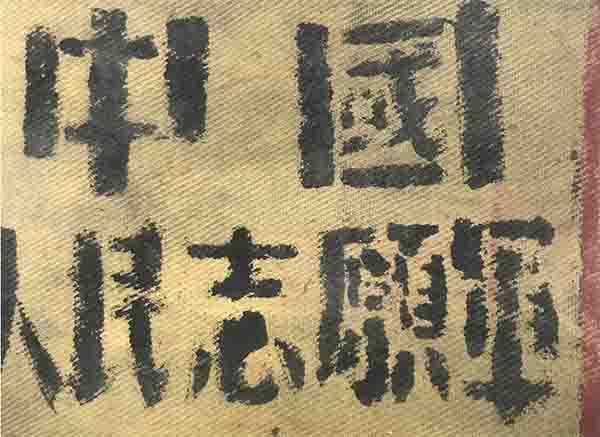 中國
人民志願軍